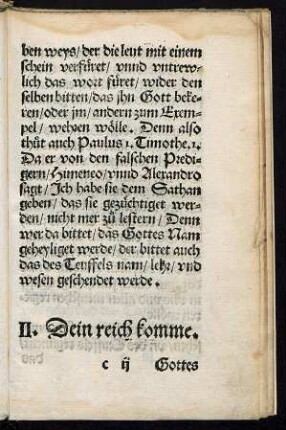 ben weys/ der die leut mit einem
schein verfüret/ vnnd vntrew-
lich das wort füret/ wider den
selben bitten/ das jhn Gott beke-
ren/ oder jm/ andern zum Exem-
pel/ wehren wölle. Denn also
thůt auch Paulus 1. Timothe. 1.
Da er von den falschen Predi-
gern/ Himeneo/ vnnd Alexandro
sagt/ Ich habe sie dem Sathan
geben/ das sie gezüchtiget wer-
den/ nicht mer zů lestern/ Denn
wer da bittet/ das Gottes Nam
geheyliget werde/ der bittet auch
das des Teuffels nam/ lehr/ vnd
wesen geschendet werde.
II. Dein reich komme.
c ij Gottes